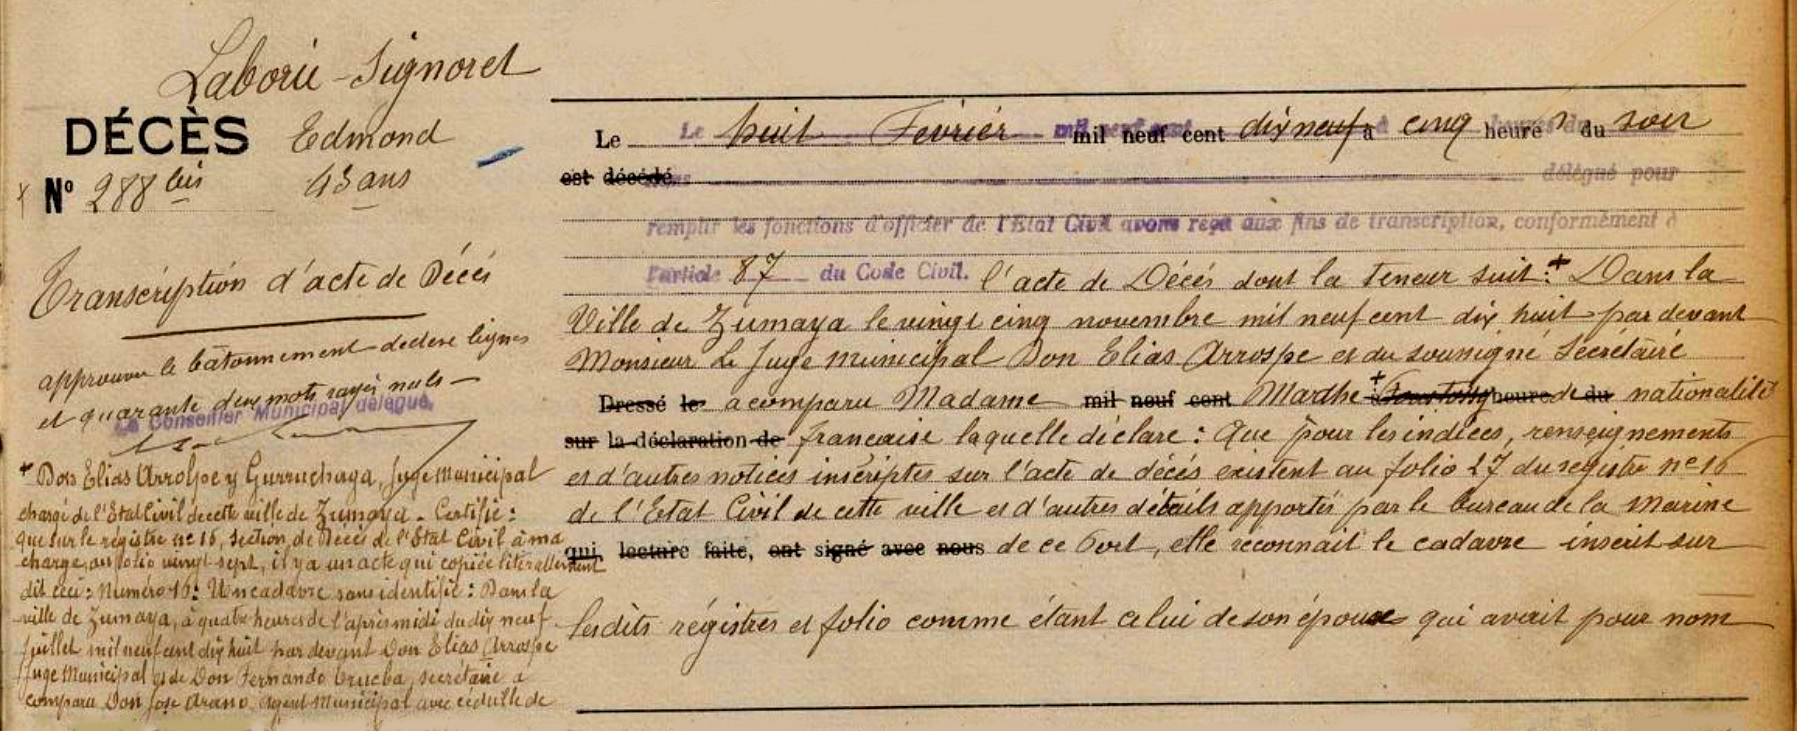 Laborie-Signoret
DÉCÈS Edmond
N° 288 bis 43 ans
Transcription d'acte de Décés
approuvé le bâtonnement de deux lignes
et quarante deux mots rayés nuls —
Le Conseiller Municipal délégué,
+ Don Elias Arrospe y Gurruchaga, Juge Municipal
chargé de l'Etat Civil de cette ville de Zumaya. Certifie :
que sur le régistre nº 16, section de Décés de l'Etat Civil à ma
charge, au folio vingt sept, il y a un acte qui copiée litéralement
dit ceci : Numéro 16 : Un cadavre sans identifié : Dans la
ville de Zumaya, à quatre heures de l'après midi du dix neuf
Juillet mil neuf cent dix huit par devant Don Elias Arrospe
Juge Municipal et de Don Fernando Trueba, secrétaire a
comparu Don Jose Arano, agent Municipal avec cédulle de
Le huit Février mil neuf cent dix neuf à cinq heures du soir
est décédé délégué pour
remplir les fonctions d'officier de l'Etat Civil avons reçu aux fins de transcription, conformément à
l'article 87 du Code Civil. l'acte de Décés dont la teneur suit : + Dans la
Ville de Zumaya le vingt cinq novembre mil neuf cent dix huit par devant
Monsieur Le Juge municipal Don Elias Arrospe et du soussigné Secrétaire
Dressé le a comparu Madame mil neuf cent Marthe + heure de du nationalité
sur la déclaration de française laquelle déclare : Que pour les indices, renseignements
et d'autres notices inscriptes sur l'acte de décés existent au folio 27 du régistre nº 16
de l'Etat Civil de cette ville et d'autres détails apportés par le bureau de la Marine
qui, lecture faite, ont signé avec nous de ce Port, elle reconnait le cadavre inscrit sur
lesdits régistres et folio comme étant celui de son époux qui avait pour nom